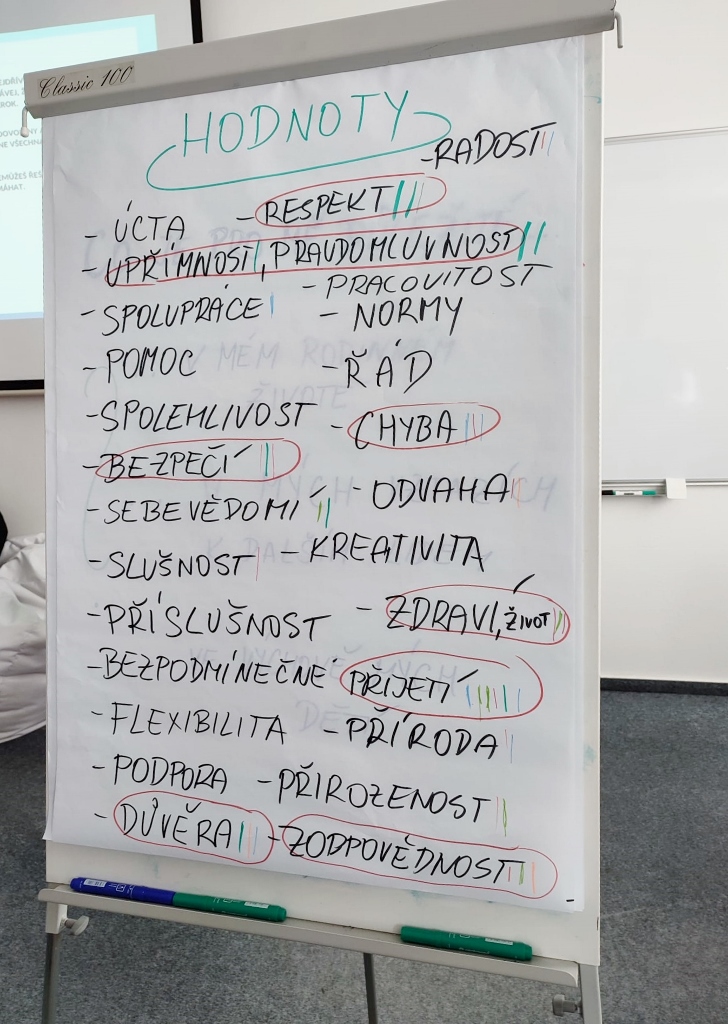 Classic 100
HODNOTY
-RADOST
- ÚCTA - RESPEKT
- UPŘÍMNOST, PRAVDOMLUVNOST
- PRACOVITOST
- SPOLUPRÁCE - NORMY
- POMOC - ŘÁD
- SPOLEHLIVOST - CHYBA
- BEZPEČÍ
- SEBEVĚDOMÍ - ODVAHA
- SLUŠNOST - KREATIVITA
- PŘÍSLUŠNOST - ZDRAVÍ, ŽIVOT
- BEZPODMÍNEČNÉ PŘIJETÍ
- FLEXIBILITA - PŘÍRODA
- PODPORA - PŘIROZENOST
- DŮVĚRA - ZODPOVĚDNOST